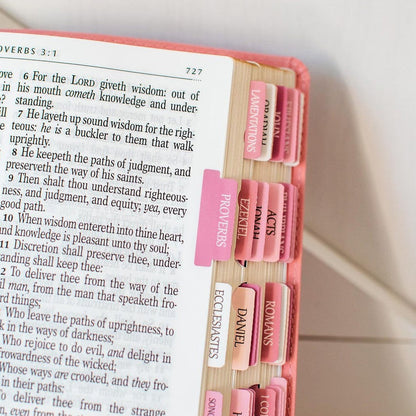 ROVERBS 3:1
727
6 For the LORD giveth wisdom: out of
his mouth cometh knowledge and under-
standing.
7 He layeth up sound wisdom for the righ-
teous: he is a buckler to them that walk
uprightly.
8 He keepeth the paths of judgment, and
preserveth the way of his saints.
9 Then shalt thou understand righteous-
ness, and judgment, and equity; yea, every
good path.
10 When wisdom entereth into thine heart,
and knowledge is pleasant unto thy soul;
11 Discretion shall preserve thee, under-
anding shall keep thee:
2 To deliver thee from the way of the
il man, from the man that speaketh fro-
rd things;
Who leave the paths of uprightness, to
k in the ways of darkness;
Who rejoice to do evil, and delight in
frowardness of the wicked;
Whose ways are crooked, and they fro-
in their paths:
To deliver thee from the strange
n, even from the
LAMENTATIONS
OBADIAH
JOHN
PROVERBS
EZEKIEL
JONAH
ACTS
ECCLESIASTES
DANIEL
ROMANS
SONG
1 CO